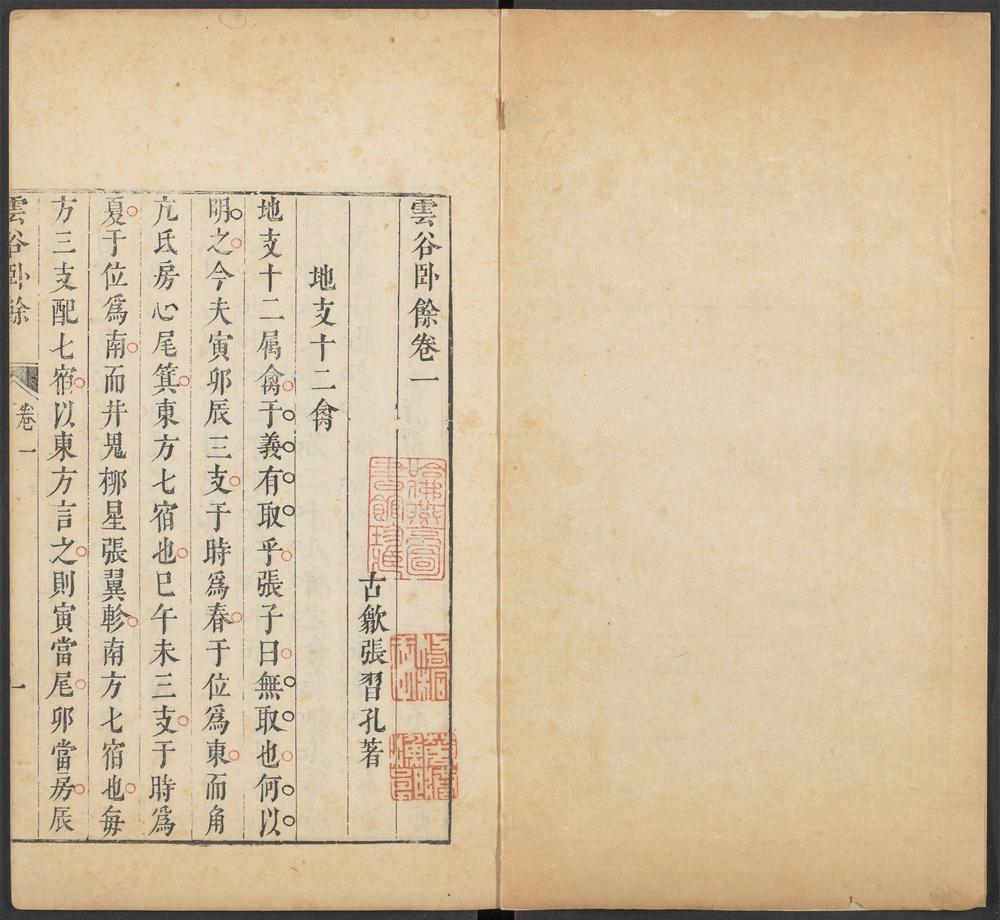 雲谷卧餘卷一
古歙張習孔著
地支十二禽
地支十二属禽于義有取乎張子曰無取也何以
明之今夫寅卯辰三支于時爲春于位爲東而角
亢氐房心尾箕東方七宿也巳午未三支于時爲
夏于位爲南而井鬼桺星張翼軫南方七宿也每
方三支配七宿以東方言之則寅當尾卯當房辰
雲谷卧餘
卷一
一
哈佛燕京圖
書館珍藏